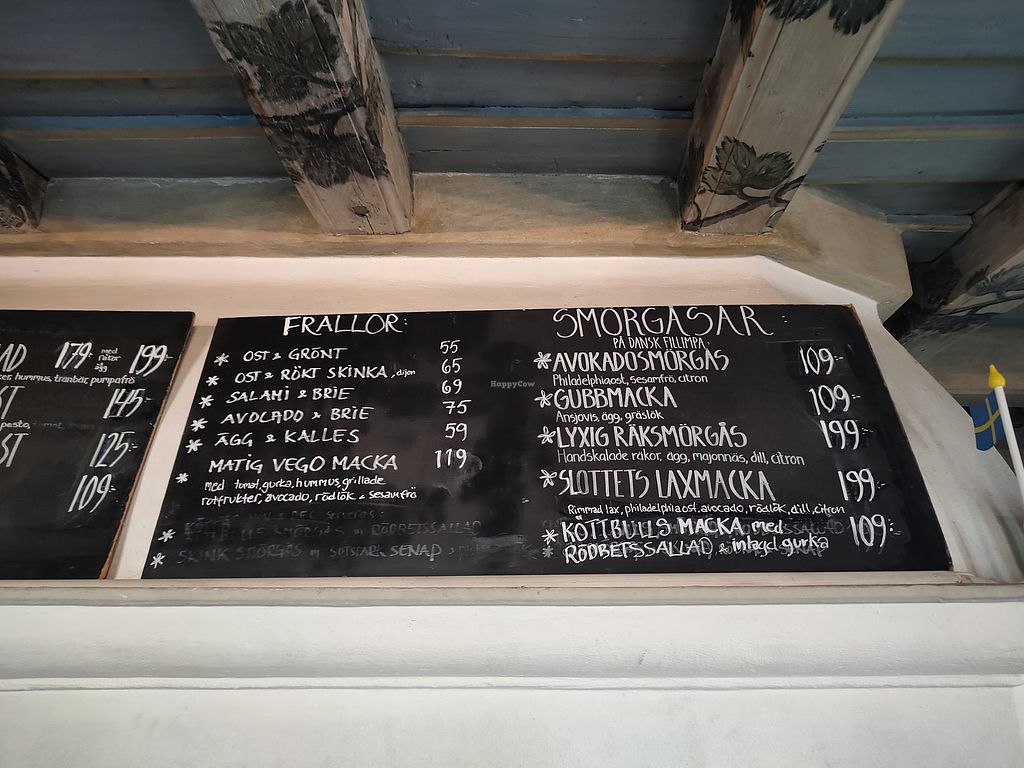 AD 179:- med räkor ägg 199:-
hummus, tranbär, pumpafrö
ST 145:-
pesto,
ST 125:-
109:-
FRALLOR:
* OST & GRÖNT 55
* OST & RÖKT SKINKA, dijon 65
* SALAMI & BRIE 69
* AVOCADO & BRIE 75
* ÄGG & KALLES 59
* MATIG VEGO MACKA 119
med tomat, gurka, hummus, grillade
rotfrukter, avocado, rödlök & sesamfrö
RÖDBETSSALLAD
SKINK SMÖRGÅS m SENAP
SMÖRGÅSAR
PÅ DANSK FILLIMPA
* AVOKADOSMÖRGÅS 109:-
Philadelphiaost, sesamfrö, citron
* GUBBMACKA 109:-
Ansjovis, ägg, gräslök
* LYXIG RÄKSMÖRGÅS 199:-
Handskalade räkor, ägg, majonnäs, dill, citron
* SLOTTETS LAXMACKA 199:-
Rimmad lax, philadelphiaost, avocado, rödlök, dill, citron
* KÖTTBULLS MACKA med 109:-
* RÖDBETSSALLAD & inlagd gurka
HappyCow